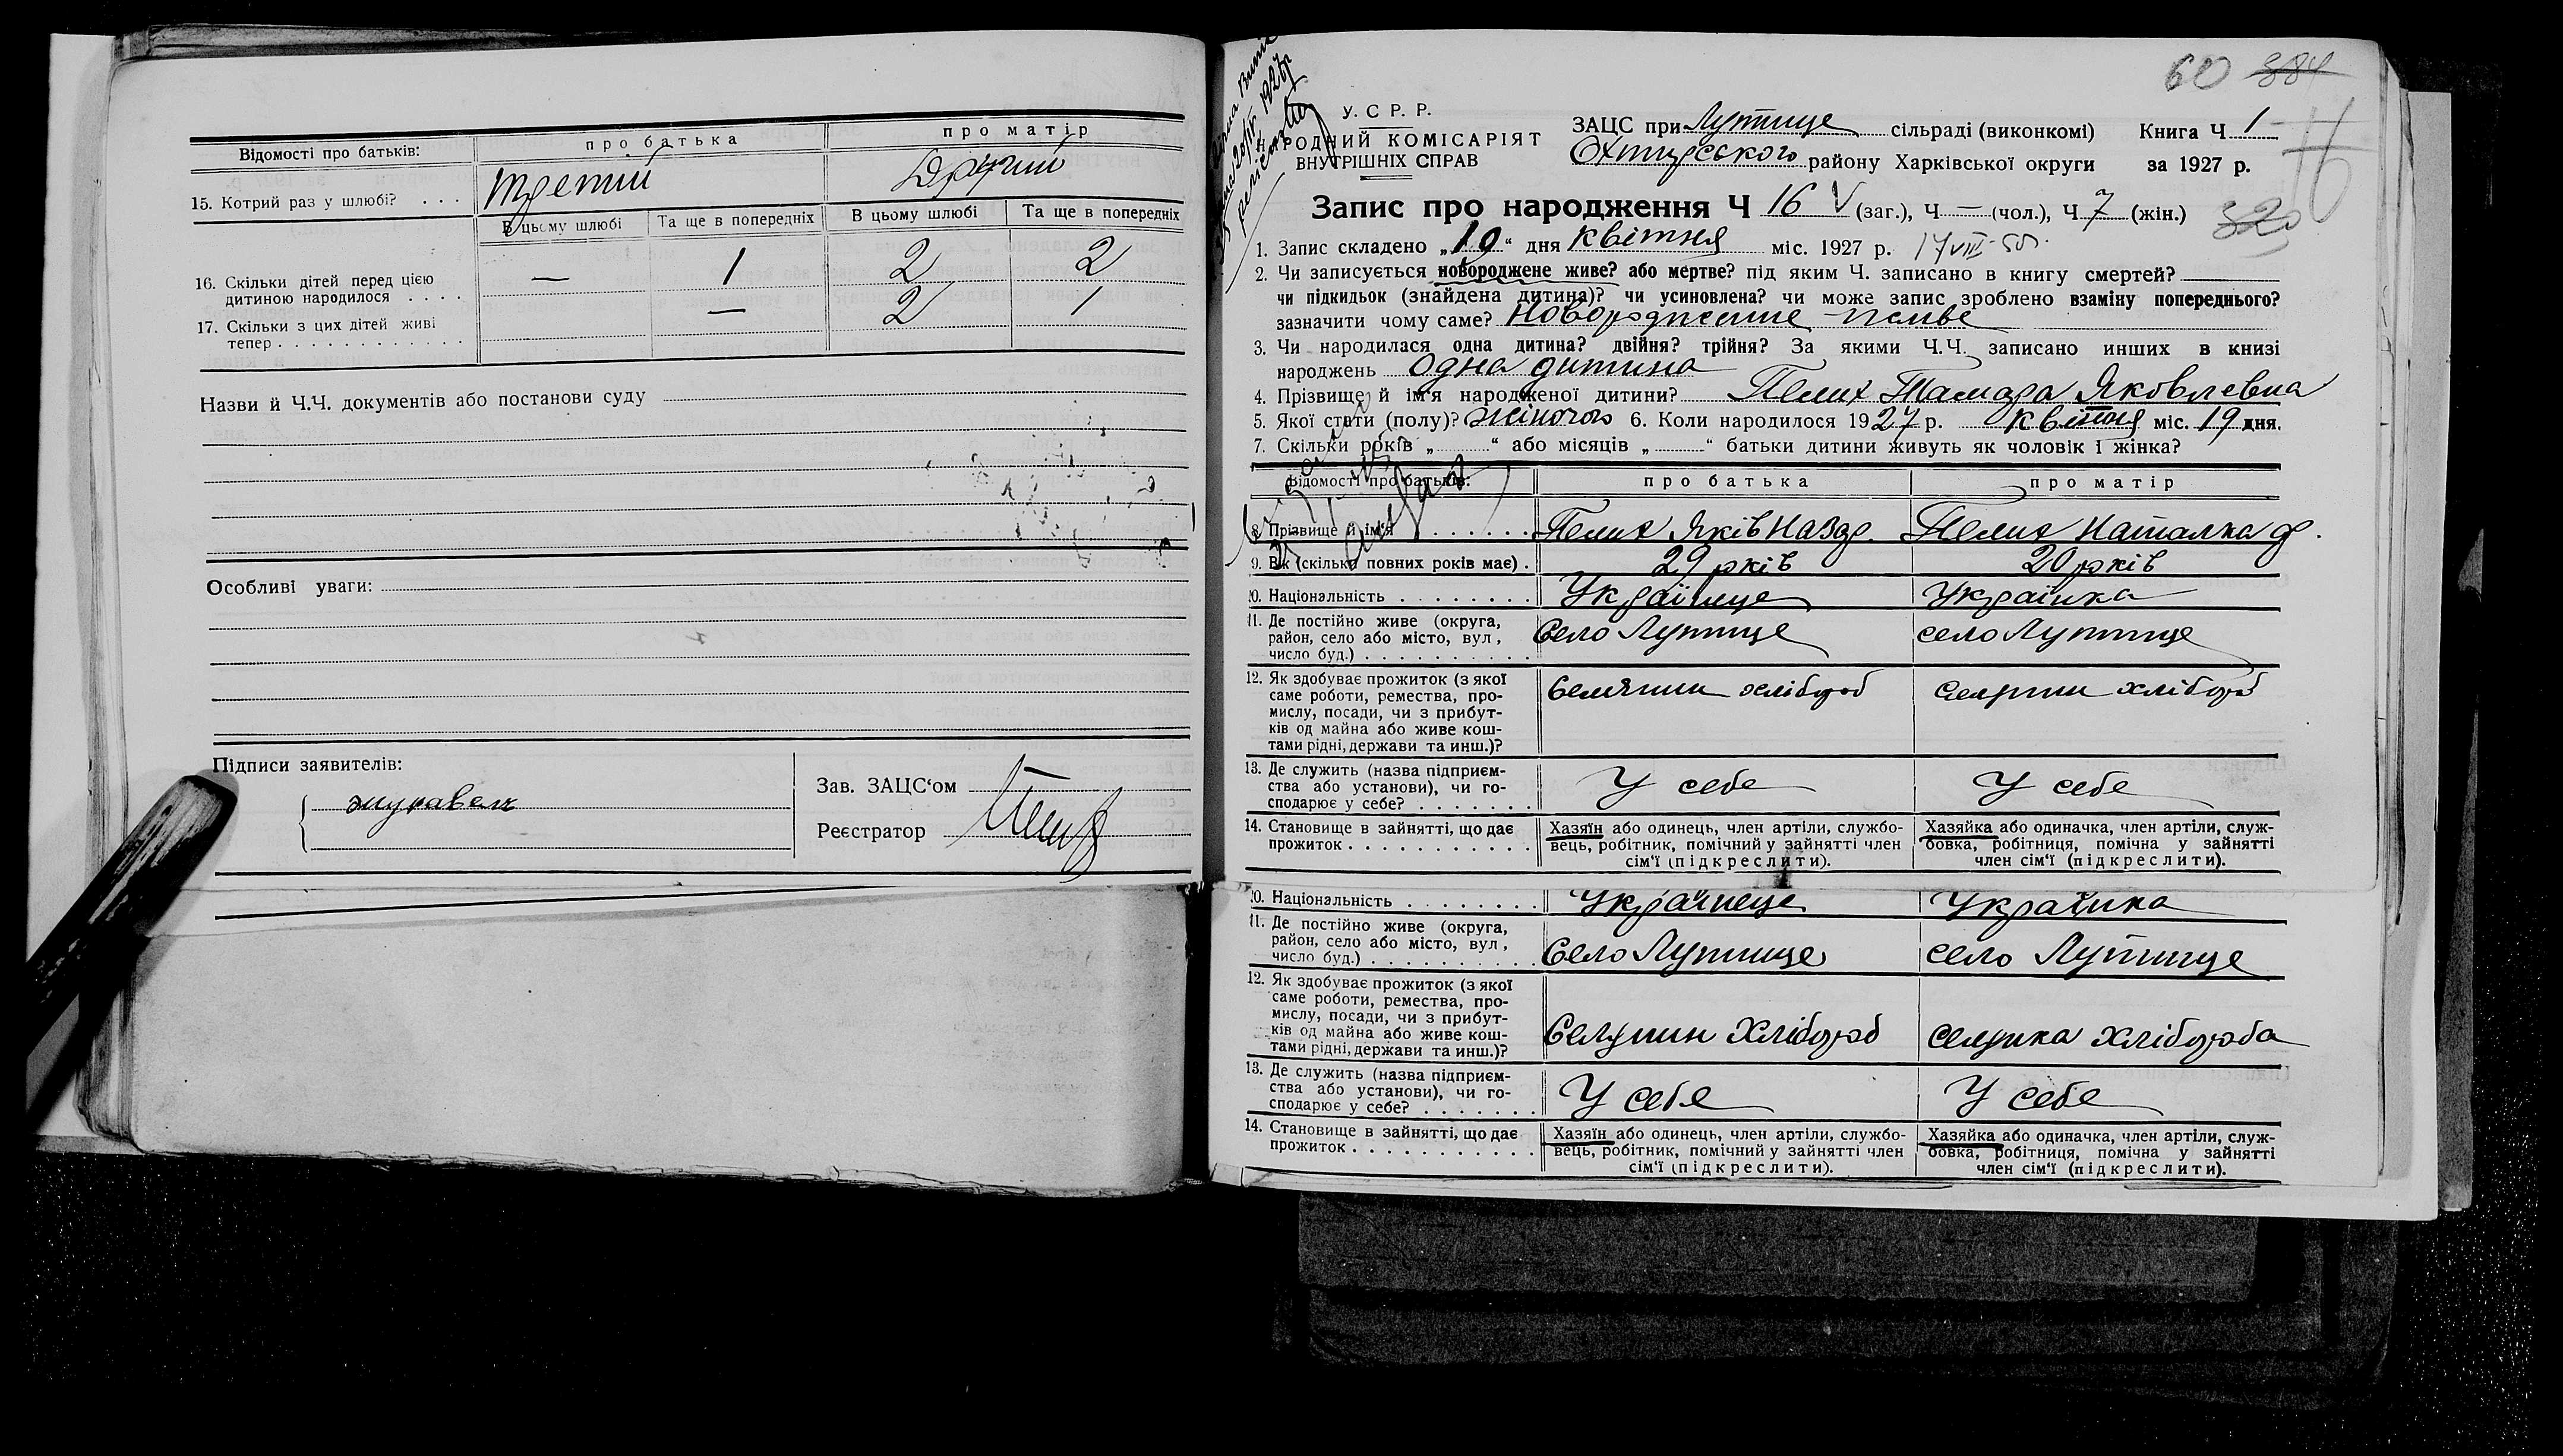 Відомості про батьків:
про батька
про матір
15. Котрий раз у шлюбі? . . .
третий
Другий
В цьому шлюбі
Та ще в попередніх
В цьому шлюбі
Та ще в попередніх
16. Скільки дітей перед цією
дитиною народилося . . . .
— 1 2 2
17. Скільки з цих дітей живі
тепер . . . . . . . . . . . .
— 2 1
Назви й Ч.Ч. документів або постанови суду
Особливі уваги:
Підписи заявителів:
журавель
Зав. ЗАЦС‘ом
Реєстратор
60 384
У. С Р. Р.
РОДНИЙ КОМІСАРІЯТ
ВНУТРІШНІХ СПРАВ
ЗАЦС при Лутище сільраді (виконкомі)
Охтирського району Харківської округи
Книга Ч 1
за 1927 р.
Запис про народження Ч 16 V (заг.), Ч — (чол.), Ч 7 (жін.)
320
1. Запис складено „19“ дня квітня міс. 1927 р. 17 VIII
2. Чи записується новороджене живе? або мертве? під яким Ч. записано в книгу смертей?
чи підкидьок (знайдена дитина)? чи усиновлена? чи може запис зроблено взаміну попереднього?
зазначити чому саме? Новорожденне живе
3. Чи народилася одна дитина? двійня? трійня? За якими Ч.Ч. записано инших в книзі
народжень одна дитина
4. Прізвище й ім‘я народженої дитини? Пелих Тамара Яковлевна
5. Якої стати (полу)? жіночого 6. Коли народилося 1927 р. квітня міс. 19 дня.
7. Скільки років „ “ або місяців „ “ батьки дитини живуть як чоловік і жінка?
Відомості про батьків:
про батька
про матір
8. Прізвище й ім‘я . . . . . .
Пелих Яків Назар.
Пелих Наталка Ф.
9. Вік (скільки повних років має) .
29 років
20 років
10. Національність . . . . . . . .
Українце
Українка
11. Де постійно живе (округа,
район, село або місто, вул,
число буд.) . . . . . . . . . .
Село Лутище
село Лутище
12. Як здобуває прожиток (з якої
саме роботи, ремества, про-
мислу, посади, чи з прибут-
ків од майна або живе кош-
тами рідні, держави та инш.)?
Селянин хлібороб
селянин хлібороб
13. Де служить (назва підприєм-
ства або установи), чи го-
сподарює у себе? . . . . . . .
У себе
У себе
14. Становище в зайнятті, що дає
прожиток . . . . . . . . . . .
Хазяїн або одинець, член артіли, службо-
вець, робітник, помічний у зайнятті член
сім‘ї (підкреслити).
Хазяйка або одиначка, член артіли, служ-
бовка, робітниця, помічна у зайнятті
член сім‘ї (підкреслити).
10. Національність . . . . . . . .
Українеце
Українка
11. Де постійно живе (округа,
район, село або місто, вул,
число буд.) . . . . . . . . . .
Село Лутище
село Лутище
12. Як здобуває прожиток (з якої
саме роботи, ремества, про-
мислу, посади, чи з прибут-
ків од майна або живе кош-
тами рідні, держави та инш.)?
Селянин Хлібороб
селянка хлібороба
13. Де служить (назва підприєм-
ства або установи), чи го-
сподарює у себе? . . . . . . .
У себе
У себе
14. Становище в зайнятті, що дає
прожиток . . . . . . . . . . .
Хазяїн або одинець, член артіли, службо-
вець, робітник, помічний у зайнятті член
сім‘ї (підкреслити).
Хазяйка або одиначка, член артіли, служ-
бовка, робітниця, помічна у зайнятті
член сім‘ї (підкреслити).